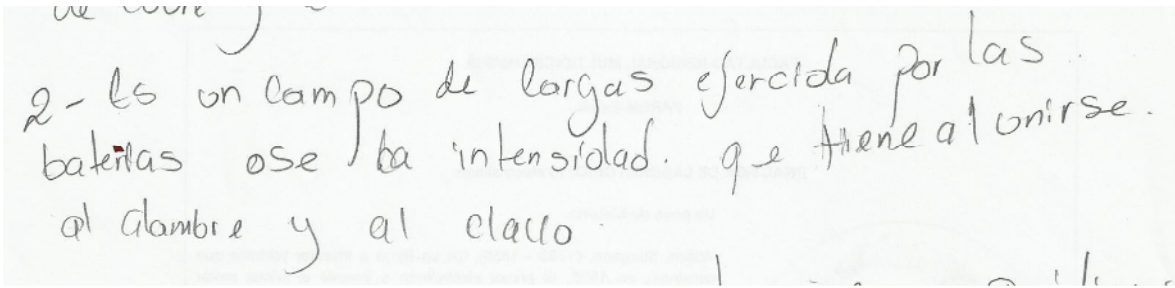 de cobre y
2- Es un campo de cargas ejercida por las
baterias ose la intensidad. qe tiene al unirse.
al alambre y al clallo